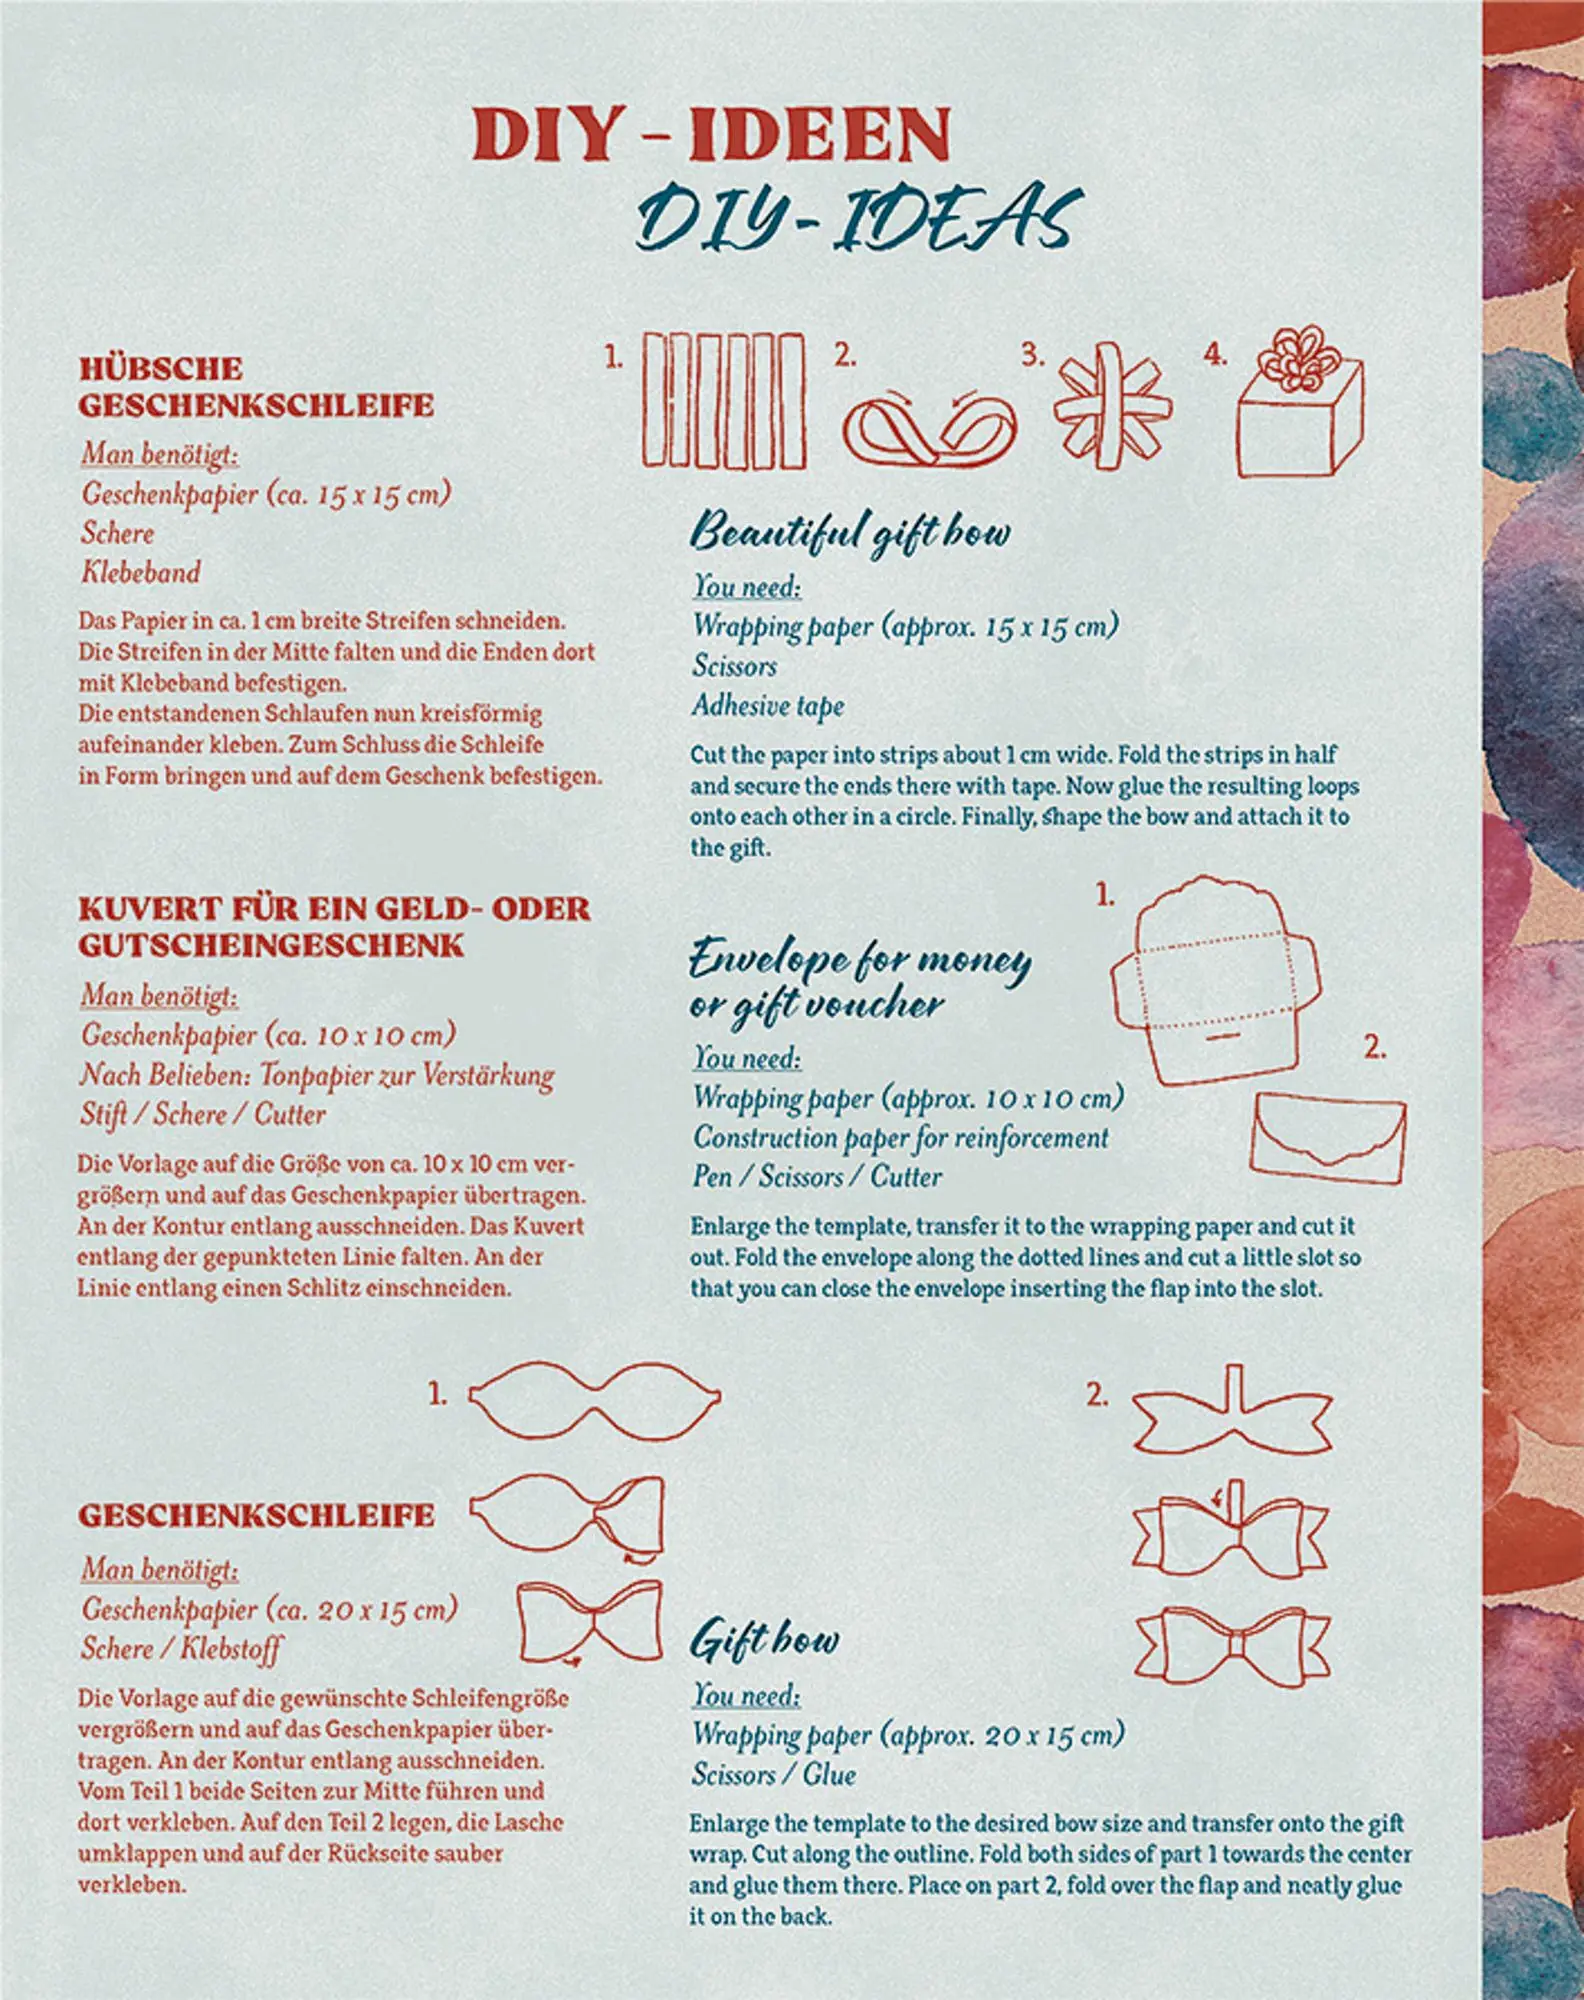 DIY - IDEEN
DIY - IDEAS
HÜBSCHE
GESCHENKSCHLEIFE
Man benötigt:
Geschenkpapier (ca. 15 x 15 cm)
Schere
Klebeband
Das Papier in ca. 1 cm breite Streifen schneiden.
Die Streifen in der Mitte falten und die Enden dort
mit Klebeband befestigen.
Die entstandenen Schlaufen nun kreisförmig
aufeinander kleben. Zum Schluss die Schleife
in Form bringen und auf dem Geschenk befestigen.
1.
2.
3.
4.
Beautiful gift bow
You need:
Wrapping paper (approx. 15 x 15 cm)
Scissors
Adhesive tape
Cut the paper into strips about 1 cm wide. Fold the strips in half
and secure the ends there with tape. Now glue the resulting loops
onto each other in a circle. Finally, shape the bow and attach it to
the gift.
KUVERT FÜR EIN GELD- ODER
GUTSCHEINGESCHENK
Man benötigt:
Geschenkpapier (ca. 10 x 10 cm)
Nach Belieben: Tonpapier zur Verstärkung
Stift / Schere / Cutter
Die Vorlage auf die Größe von ca. 10 x 10 cm ver-
größern und auf das Geschenkpapier übertragen.
An der Kontur entlang ausschneiden. Das Kuvert
entlang der gepunkteten Linie falten. An der
Linie entlang einen Schlitz einschneiden.
1.
2.
Envelope for money
or gift voucher
You need:
Wrapping paper (approx. 10 x 10 cm)
Construction paper for reinforcement
Pen / Scissors / Cutter
Enlarge the template, transfer it to the wrapping paper and cut it
out. Fold the envelope along the dotted lines and cut a little slot so
that you can close the envelope inserting the flap into the slot.
1.
2.
GESCHENKSCHLEIFE
Man benötigt:
Geschenkpapier (ca. 20 x 15 cm)
Schere / Klebstoff
Die Vorlage auf die gewünschte Schleifengröße
vergrößern und auf das Geschenkpapier über-
tragen. An der Kontur entlang ausschneiden.
Vom Teil 1 beide Seiten zur Mitte führen und
dort verkleben. Auf den Teil 2 legen, die Lasche
umklappen und auf der Rückseite sauber
verkleben.
Gift bow
You need:
Wrapping paper (approx. 20 x 15 cm)
Scissors / Glue
Enlarge the template to the desired bow size and transfer onto the gift
wrap. Cut along the outline. Fold both sides of part 1 towards the center
and glue them there. Place on part 2, fold over the flap and neatly glue
it on the back.